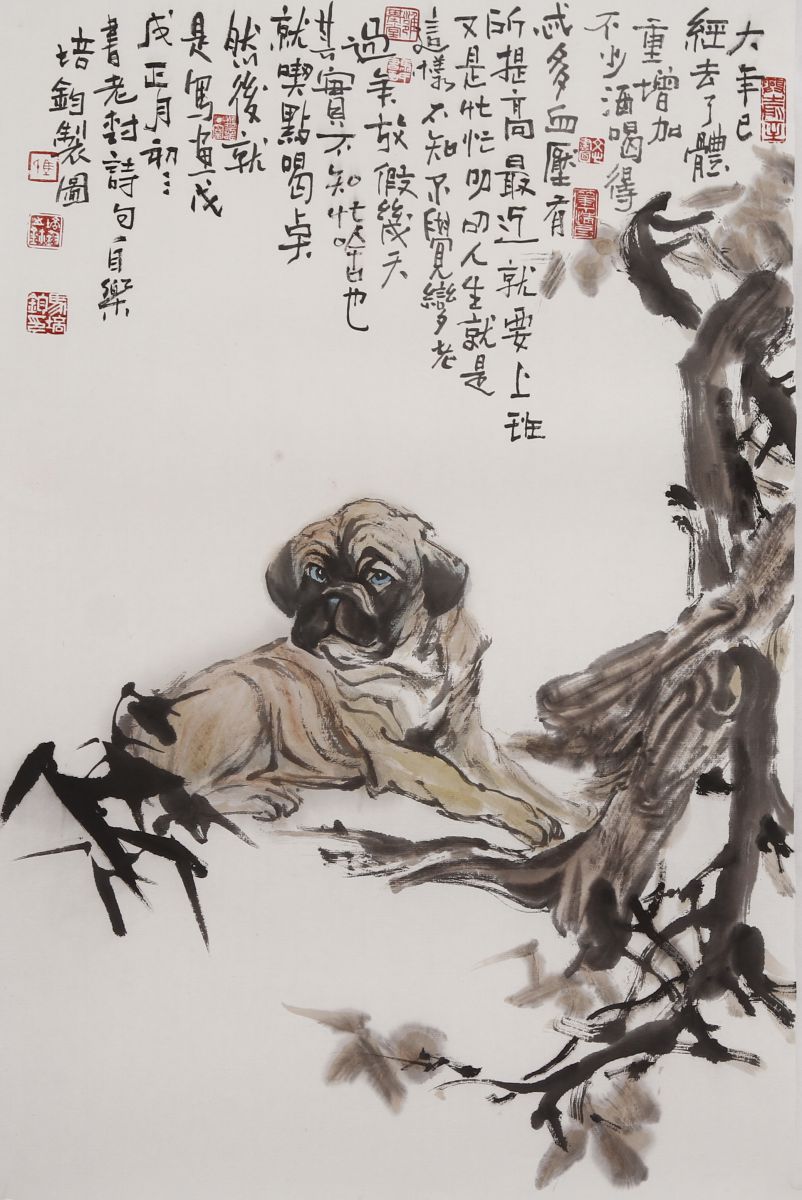 大年已
經去了體
重增加
不少酒喝得
忒多血壓有
所提高最近就要上班
又是忙忙叨叨人生就是
這樣不知不覺變老
過年放假幾天
其實不知忙啥也
就喫點喝点
然後就
是寫畫戊
戌正月初三
書老樹詩句自樂
培鈞製圖